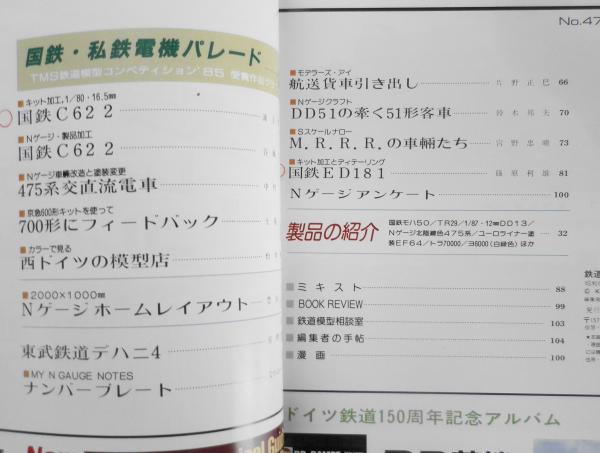 国鉄・私鉄電機パレード
TMS鉄道模型コンペティション'85 受賞作品
■キット加工、1/80・16.5㎜
国鉄C62 2
■Nゲージ・製品加工
国鉄C62 2
■Nゲージ車輛改造と塗装変更
475系交直流電車
■京急600形キットを使って
700形にフィードバック
■カラーで見る
西ドイツの模型店
■2000×1000㎜
Nゲージホームレイアウト
東武鉄道デハニ4
■MY N GAUGE NOTES
ナンバープレート
No.47
■モデラーズ・アイ
航送貨車引き出し 片野正巳 66
■Nゲージクラフト
DD51の牽く51形客車 鈴木邦夫 70
■Sスケールナロー
M.R.R.R.の車輛たち 宮野忠晴 73
■キット加工とディテーリング
国鉄ED181 篠原利雄 81
Nゲージアンケート 100
製品の紹介
国鉄モハ50/TR29/1/87・12㎜DD13/
Nゲージ北陸線色475系/ユーロライナー塗
装EF64/トラ70000/ヨ6000(白緑色)ほか
32
■ミキスト 88
■BOOK REVIEW 99
■鉄道模型相談室 103
■編集者の手帖 104
■漫画 100
ドイツ鉄道150周年記念アルバム